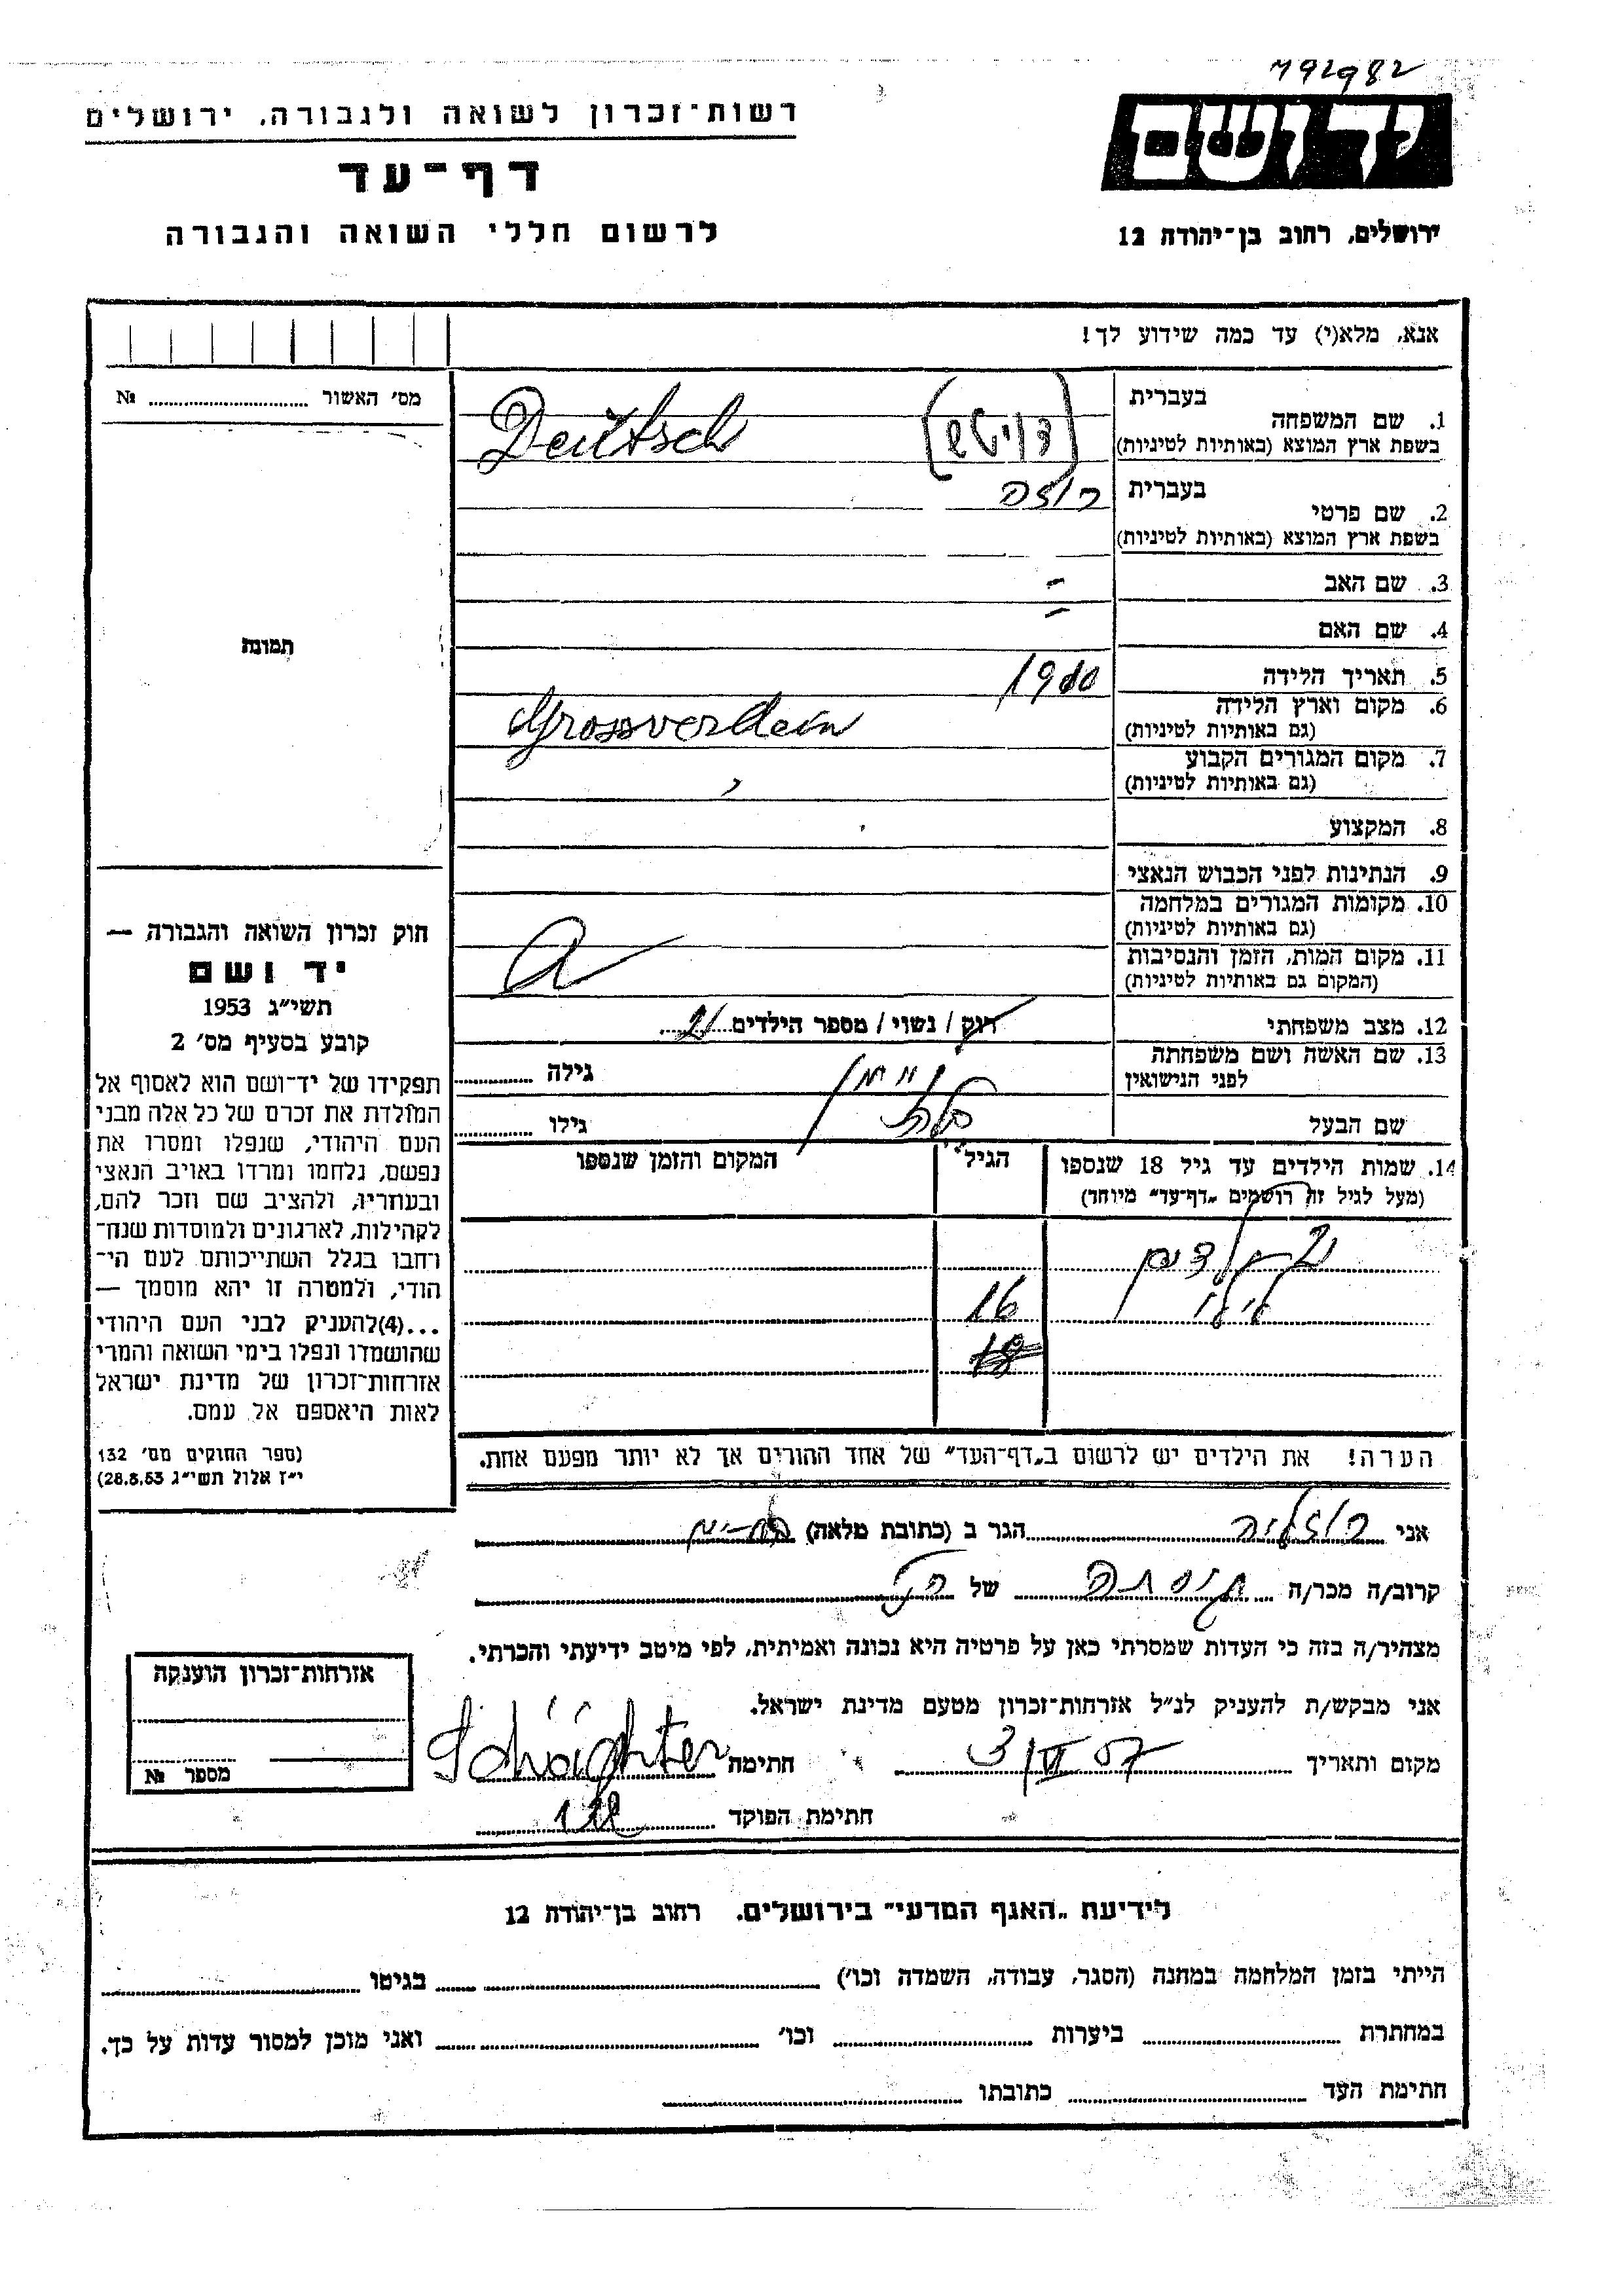 792982
יד ושם
ירושלים, רחוב בן־יהודה 12
רשות־זכרון לשואה ולגבורה, ירושלים
דף־עד
לרשום חללי השואה והגבורה
אנא, מלא(י) עד כמה שידוע לך!
מס׳ האשור №
תמונה
1. שם המשפחה בעברית (דויטש)
בשפת ארץ המוצא (באותיות לטיניות) Deutsch
2. שם פרטי בעברית רוזה
בשפת ארץ המוצא (באותיות לטיניות)
3. שם האב -
4. שם האם -
5. תאריך הלידה 1910
6. מקום וארץ הלידה Grossverdein
(גם באותיות לטיניות)
7. מקום המגורים הקבוע
(גם באותיות לטיניות)
8. המקצוע
9. הנתינות לפני הכבוש הנאצי
10. מקומות המגורים במלחמה
(גם באותיות לטיניות)
11. מקום המות, הזמן והנסיבות
(המקום גם באותיות לטיניות)
12. מצב משפחתי רוק / נשוי / מספר הילדים 2
13. שם האשה ושם משפחתה
לפני הנישואין גילה
שם הבעל גילו
14. שמות הילדים עד גיל 18 שנספו
(מעל לגיל זה רושמים „דף־עד״ מיוחד)
הגיל המקום והזמן שנספו
2 ילדים
16
18
הערה! את הילדים יש לרשום ב„דף־העד״ של אחד ההורים אך לא יותר מפעם אחת.
חוק זכרון השואה והגבורה —
יד ושם
תשי״ג 1953
קובע בסעיף מס׳ 2
תפקידו של יד־ושם הוא לאסוף אל
המולדת את זכרם של כל אלה מבני
העם היהודי, שנפלו ומסרו את
נפשם, נלחמו ומרדו באויב הנאצי
ובעוזריו, ולהציב שם וזכר להם,
לקהילות, לארגונים ולמוסדות שנח־
רחבו בגלל השתייכותם לעם הי־
הודי, ולמטרה זו יהא מוסמך —
...(4)להעניק לבני העם היהודי
שהושמדו ונפלו בימי השואה והמרי
אזרחות־זכרון של מדינת ישראל
לאות היאספם אל עמם.
(ספר החוקים מס׳ 132
י״ז אלול תשי״ג 28.8.53)
אני רוזליה הגר ב (כתובת מלאה)
קרוב/ה מכר/ה של
מצהיר/ה בזה כי העדות שמסרתי כאן על פרטיה היא נכונה ואמיתית, לפי מיטב ידיעתי והכרתי.
אני מבקש/ת להעניק לנ״ל אזרחות־זכרון מטעם מדינת ישראל.
מקום ותאריך 3/VI 57 חתימה Schächter
חתימת הפוקד
אזרחות־זכרון הוענקה
מספר №
לידיעת „האגף המדעי״ בירושלים. רחוב בן־יהודה 12
הייתי בזמן המלחמה במחנה (הסגר, עבודה, השמדה וכו׳) בגיטו
במחתרת ביערות וכו׳ ואני מוכן למסור עדות על כך.
חתימת העד כתובתו